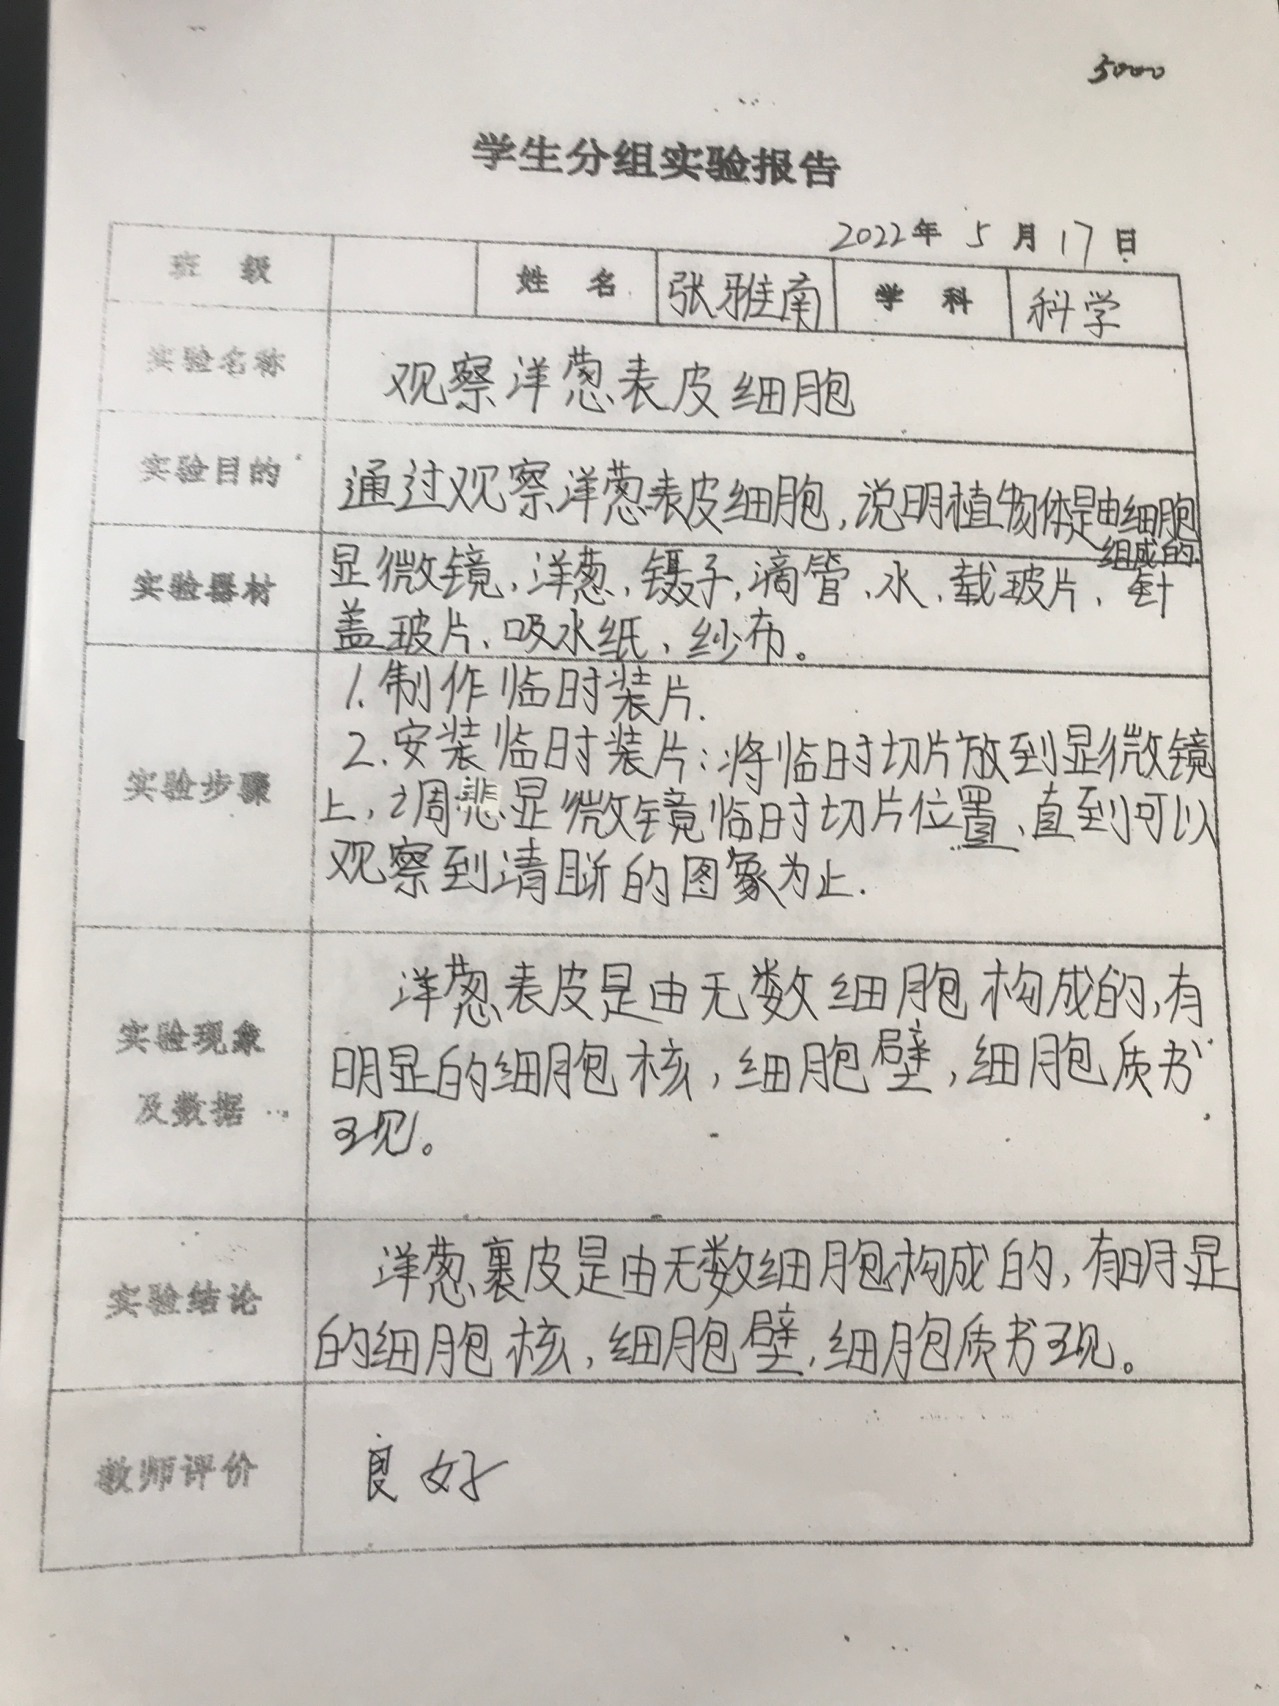 5000
学生分组实验报告
2022年 5 月 17 日
班 级 姓 名 张雅南 学 科 科学
实验名称 观察洋葱表皮细胞
实验目的 通过观察洋葱表皮细胞,说明植物体是由细胞
组成的.
实验器材 显微镜、洋葱、镊子、滴管、水、载玻片、针
盖玻片、吸水纸、纱布。
实验步骤
1.制作临时装片.
2.安装临时装片:将临时切片放到显微镜
上,调 显微镜临时切片位置、直到可以
观察到清晰的图象为止.
实验现象
及数据
洋葱表皮是由无数细胞构成的,有
明显的细胞核,细胞壁,细胞质
现。
实验结论
洋葱裹皮是由无数细胞构成的,有明显
的细胞核,细胞壁,细胞质 现。
教师评价 良好